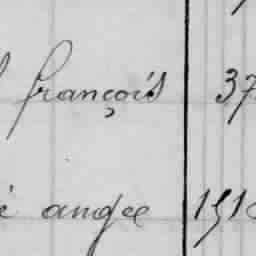 françois 37
angee 191